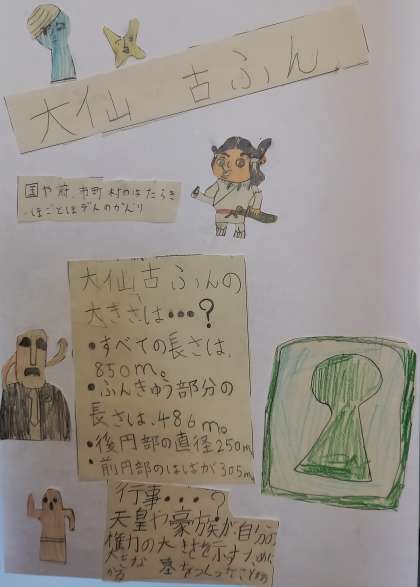 大仙 古ふん
国や府、市町村のはたらき
・ほごとほぜんのかんり
大仙古ふんの
大きさは・・・？
・すべての長さは、
850m。
・ふんきゅう部分の
長さは、486m。
・後円部の直径250m
・前円部のはばが305m
行事・・・？
天皇や豪族が、自分の
権力の大きさを示すため